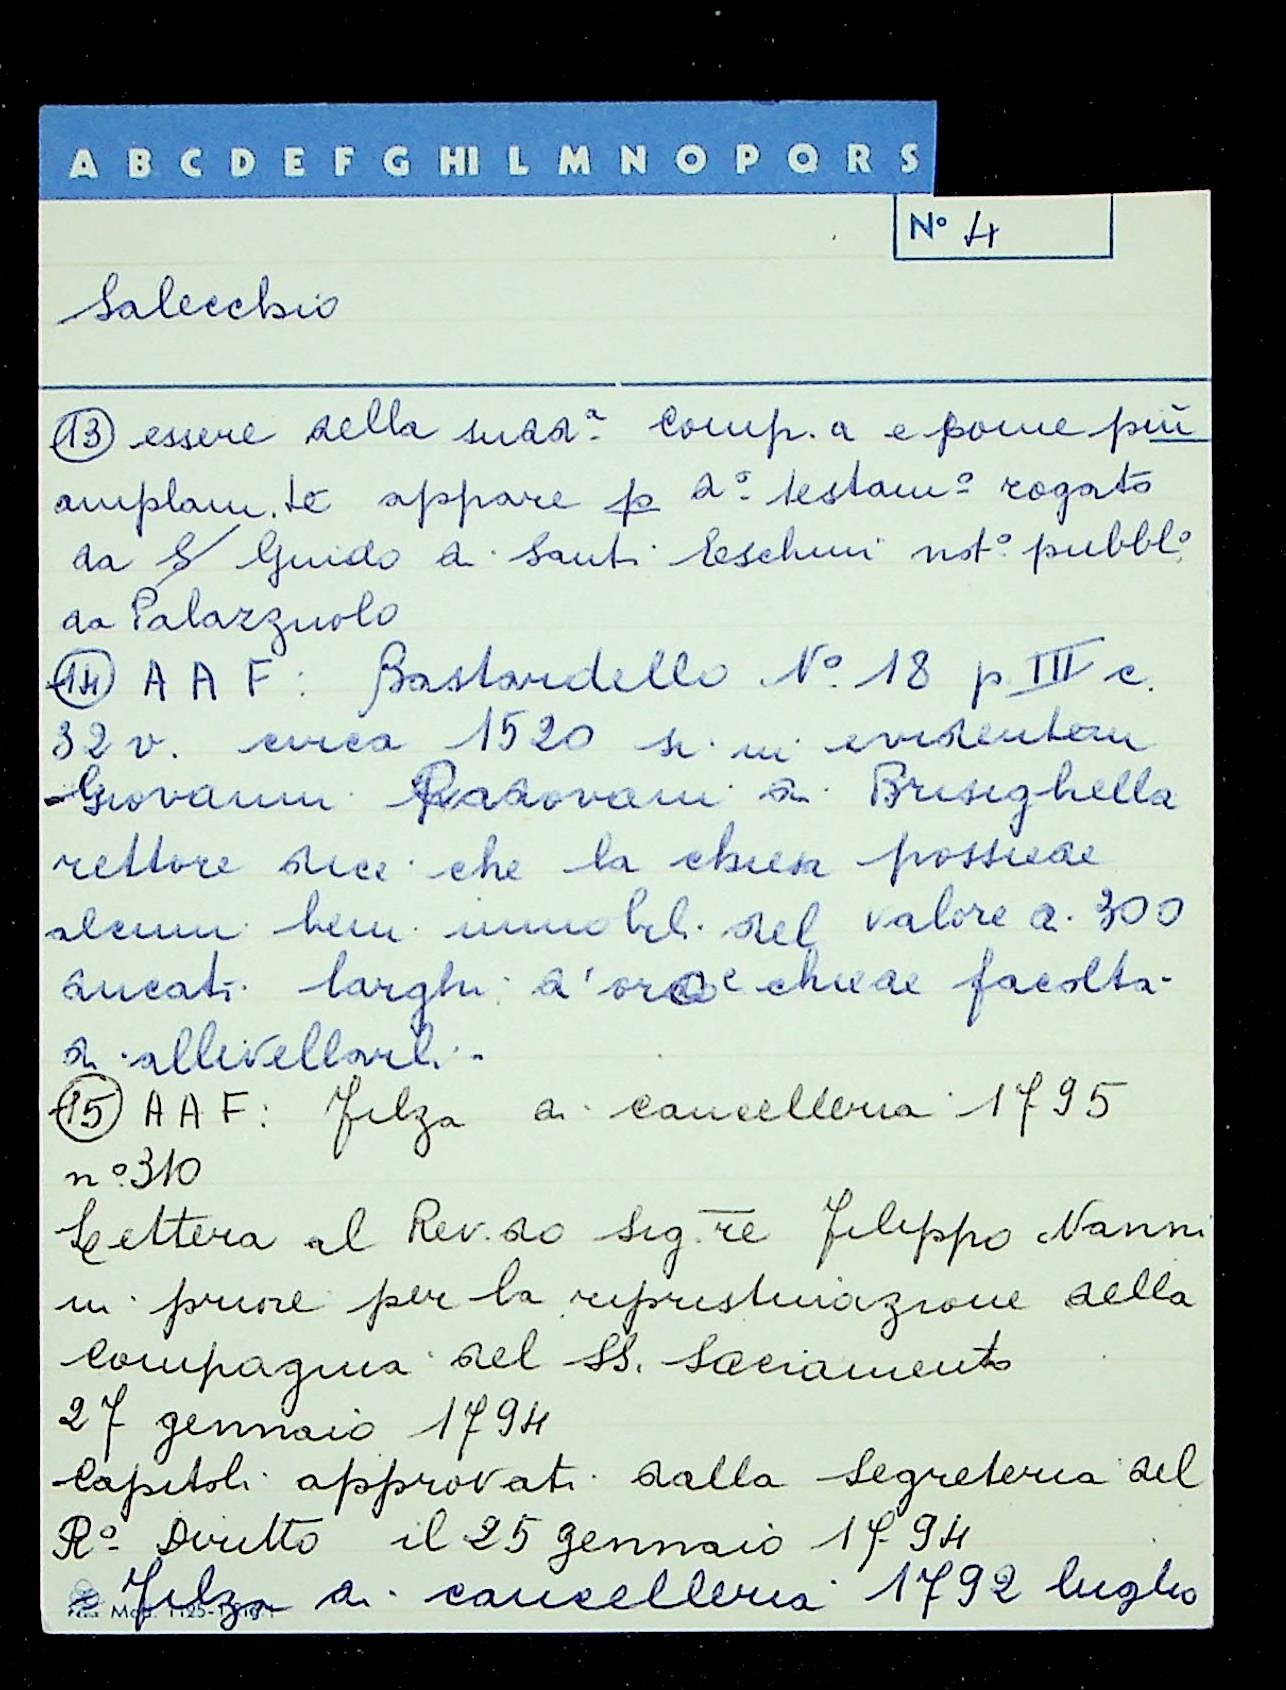 A B C D E F G HI L M N O P Q R S
N° 4
Salecchio
13 essere della sudd.a Comp.a e come più
amplam.te appare p d.° testam.° rogato
da S/ Guido di Santi Eschini not.° pubbl.°
da Palazzuolo
14 A A F: Bastardello N.° 18 p III c.
32 v. circa 1520 si in evidentem
Giovanni Padovani di Brisighella
rettore dice che la chiesa possiede
alcuni beni immobili del valore di 300
ducati larghi d'oro e chiede facoltà
di allivellarli.
15 A A F: Filza di cancelleria 1795
n.° 310
Lettera al Rev.do Sig.re Filippo Nanni
in priore per la ripristinazione della
Compagnia del SS. Sacramento
27 gennaio 1794
Capitoli approvati dalla Segreteria del
R.° Diritto il 25 gennaio 1794
Filza di cancelleria 1792 luglio